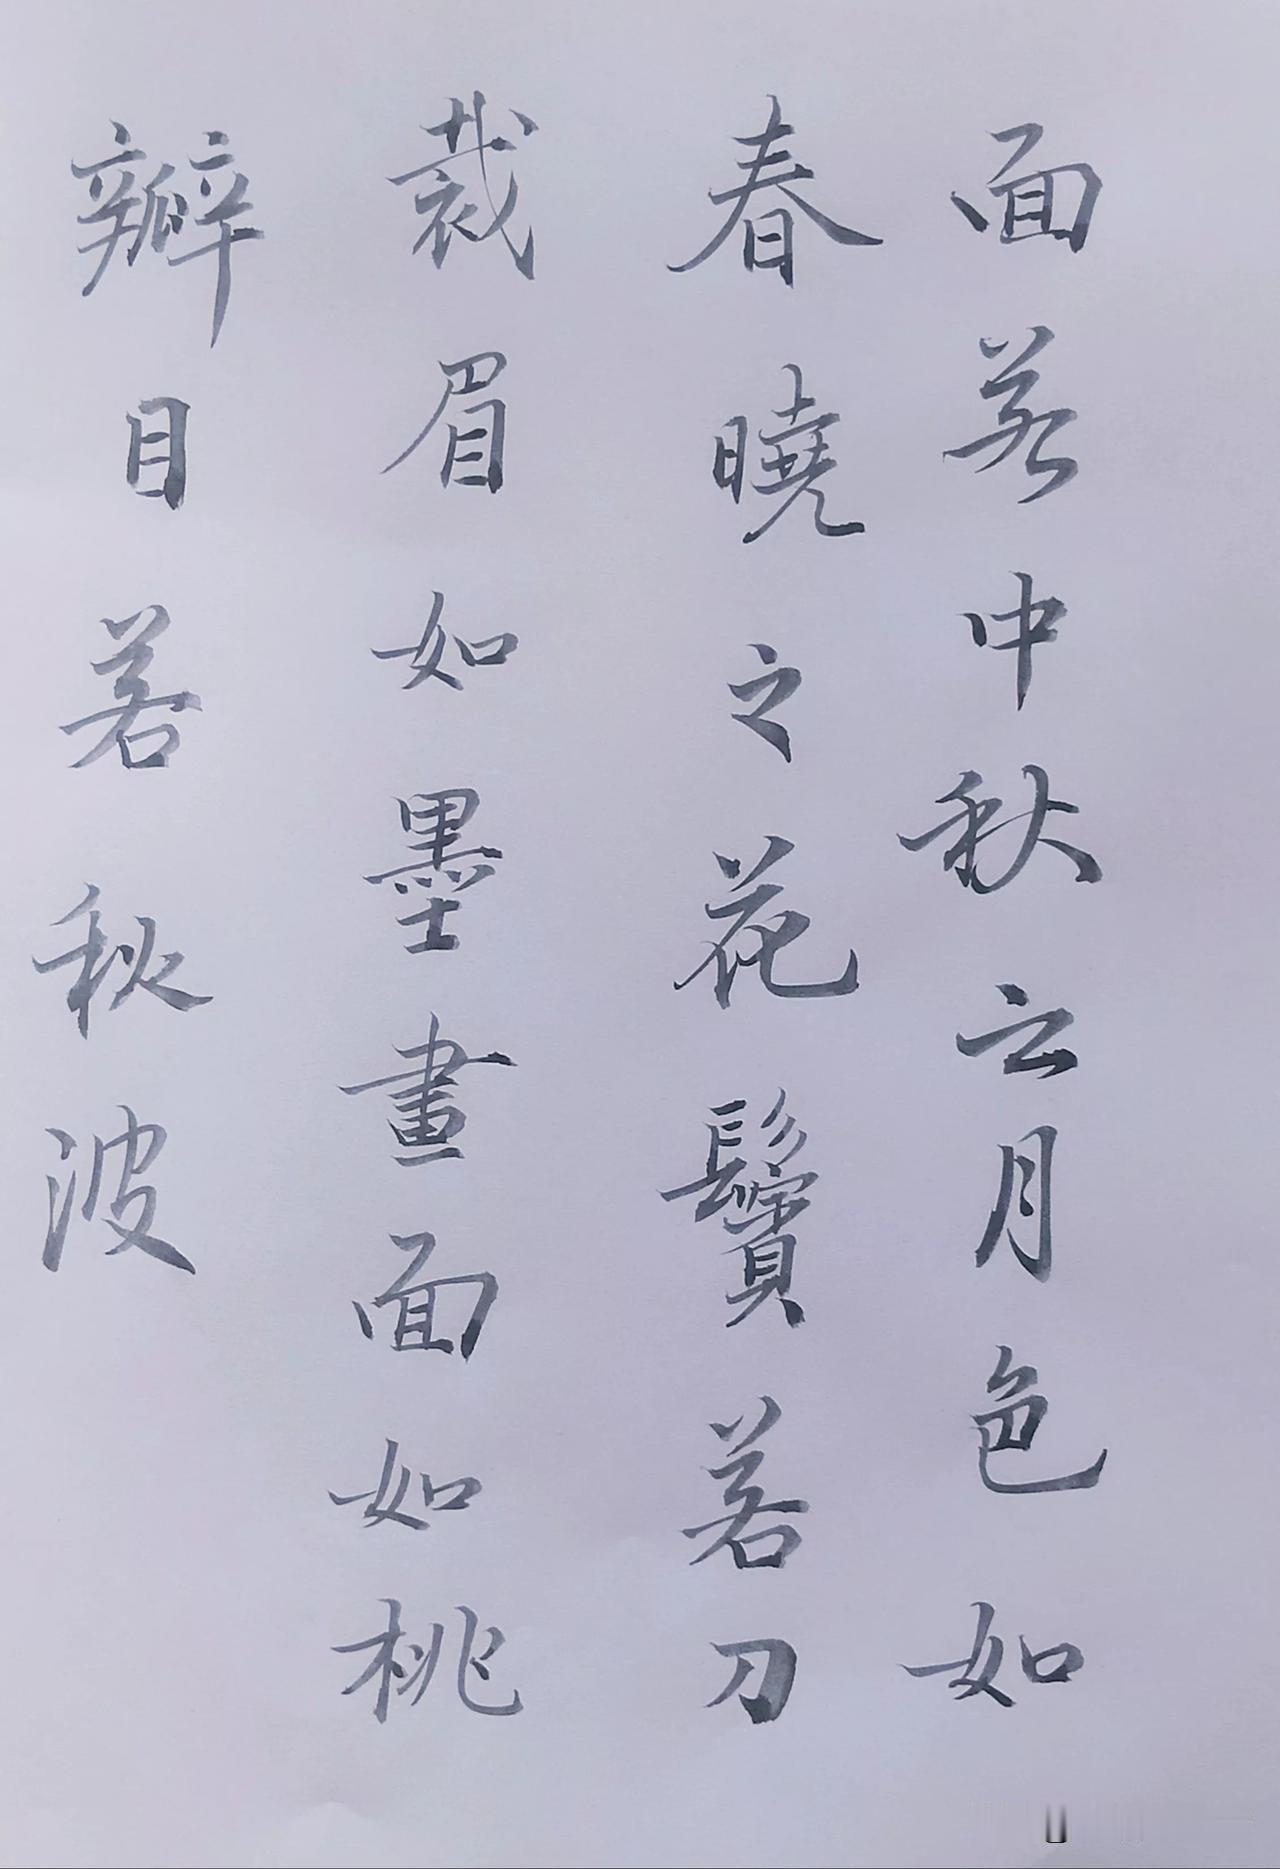 面若中秋之月色如
春曉之花鬢若刀
裁眉如墨畫面如桃
瓣目若秋波